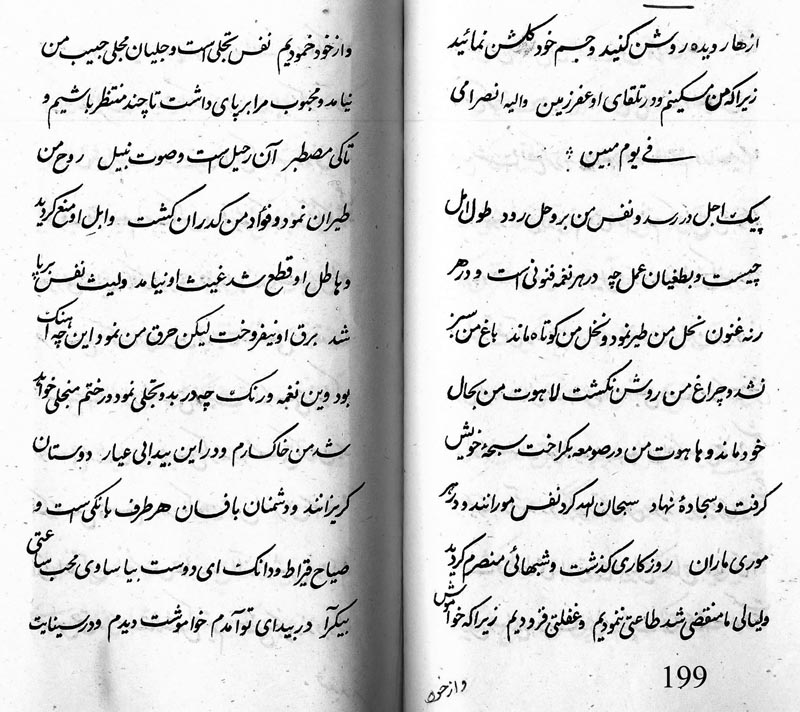 ازهار دیده روشن کنید و جسم خود گلشن نمائید
زیرا که من مسکینم و در تلقای او عفر زمین والیه انصرامی
فی یوم مبین
پیک اجل در رسد و نفس من بر وحل رود طول امل
چیست و بطغیان عمل چه در هر نغمه فنونی است و در هر
رنه غنون نحل من طیر نمود و نخل من کوتاه ماند باغ من سبز
نشد و چراغ من روشن نگشت لاهوت من بحال
خود ماند و هاهوت من در صومعه بگراخت سبحهٔ خویش
گرفت و سجادهٔ نهاد سبحان الله کرد نفس مورانند و در هر
موری ماران روزکاری گذشت و شبهائی منصرم گردید
ولیالی ما منقضی شد طاعتی ننمودیم و غفلتی فزودیم زیرا که خواهش
و از خود
199
و از خود خمودیم نفس تجلی است و جلیان مجلی حبیب من
نیامد و محبوب مرا بر پای داشت تا چند منتظر باشیم و
تا کی مصطبر آن رحیل است و صوت نبیل روح من
طیران نمود و فؤاد من کدران گشت وابل او منع گردید
و هاطل او قطع شد غیث او نیامد ولیث نفس برپا
شد برق او نیفروخت لیکن حرق من نمود این چه آهنگ
بود وین نغمه و رنگ چه در بدو تجلی نمود در ختم منجلی خواهد
شد من خاکسارم و در این بیدائی عیار دوستان
گریزانند و دشمنان با فسان هر طرف بانگی است و
صیاح قیراط و دانگ ای دوست بیا ساوی محب ساعتی
بیکرآ در بیدای تو آمدم خاموشت دیدم و در سینایت